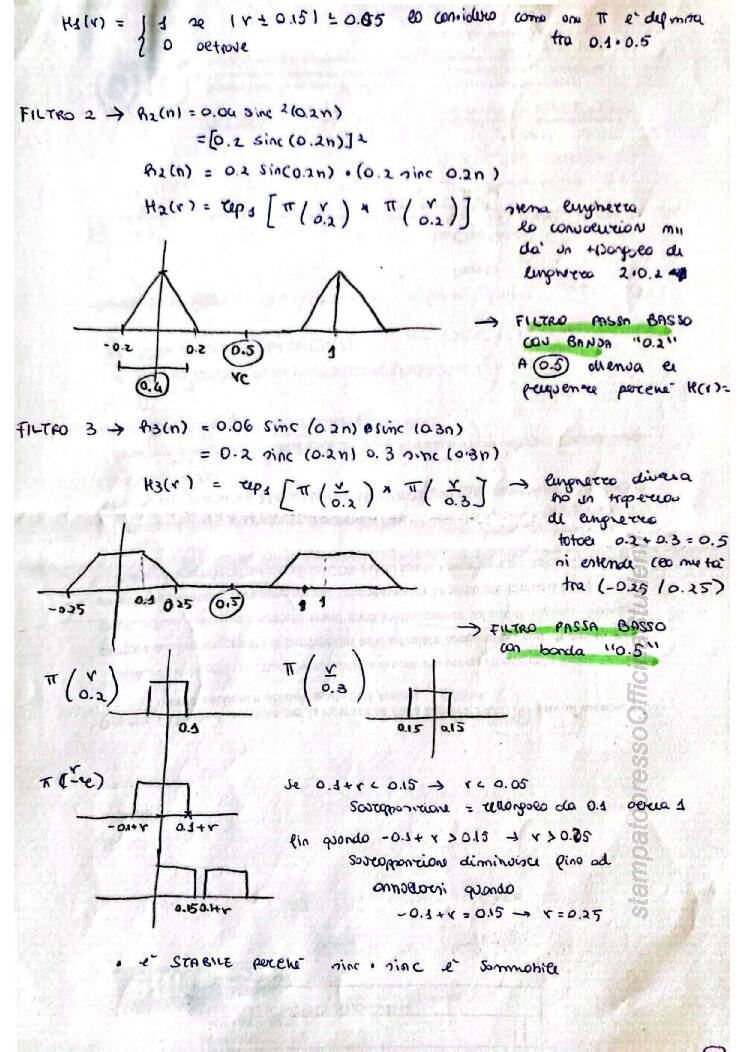 H1(v) = { 1 se |v ± 0.15| ≤ 0.05 lo considero come una π è definita
0 altrove tra 0.1 · 0.5
FILTRO 2 → h2(n) = 0.04 sinc²(0.2n)
= [0.2 sinc (0.2n)]²
h2(n) = 0.2 sin(0.2n) · (0.2 sinc 0.2n)
H2(v) = rep1 [π(v/0.2) * π(v/0.2)] stessa lunghezza
la convoluzion mi
dà un triangolo di
lunghezza 2·0.2
-0.2 0.2 0.5 1
0.4 vc
→ FILTRO PASSA BASSO
CON BANDA "0.2"
A 0.5 attenua le
frequenze perché H(v)=
FILTRO 3 → h3(n) = 0.06 sinc (0.2n) sinc (0.3n)
= 0.2 sinc (0.2n) 0.3 sinc (0.3n)
H3(v) = rep1 [π(v/0.2) * π(v/0.3)] → lunghezza diversa
ho un trapezio
di lunghezza
totale 0.2+0.3=0.5
si estende la metà
tra (-0.25 / 0.25)
-0.25 0.1 0.25 0.5 1
→ FILTRO PASSA BASSO
con banda "0.5"
π(v/0.2) 0.1 π(v/0.3) 0.15 0.15
-0.1+v 0.1+v
Se 0.1+v < 0.15 → v < 0.05
Sovrapposizione = rettangolo da 0.1 altezza 1
fin quando -0.1+v > 0.15 → v > 0.25
sovrapposizione diminuisce fino ad
annullarsi quando
-0.1+v = 0.15 → v = 0.25
0.15 0.1+v
• è STABILE perché sinc · sinc è sommabile
stampatopressoOfficinaStudenti